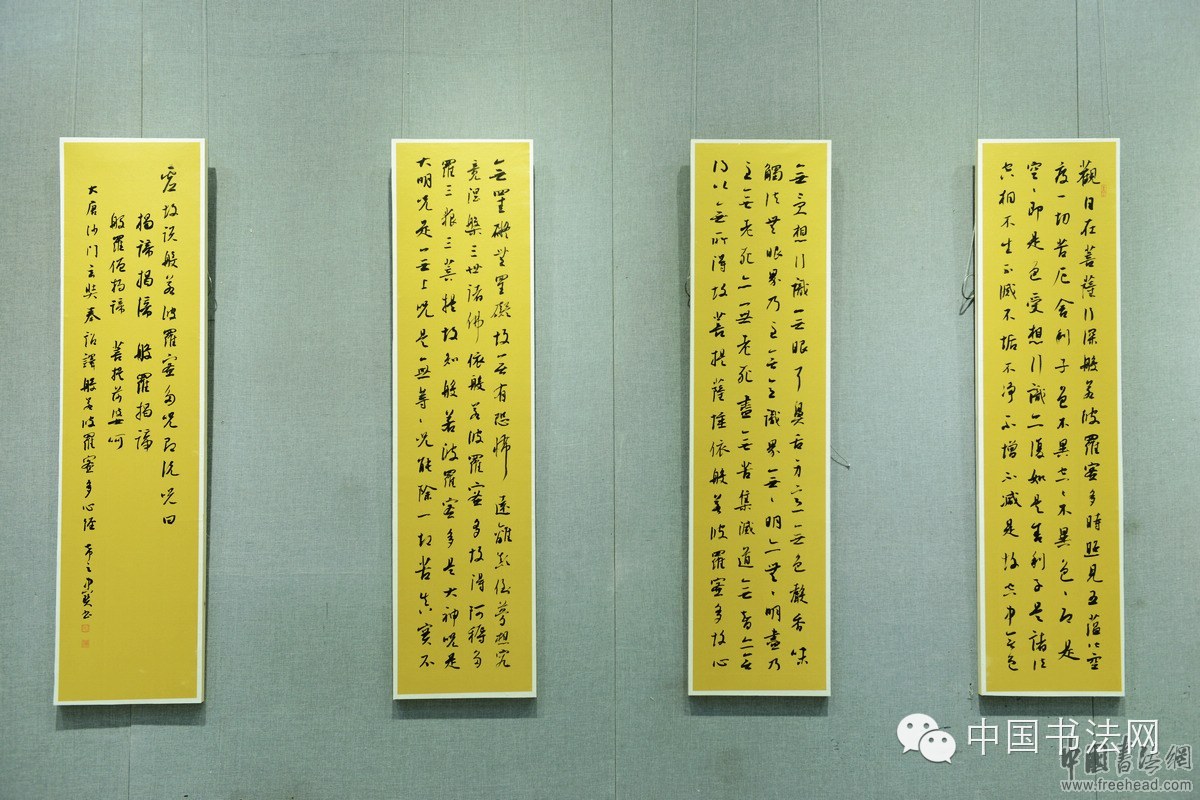 觀自在菩薩行深般若波羅蜜多時照見五蘊皆空
度一切苦厄舍利子色不異空、不異色、即是
空、即是色受想行識亦復如是舍利子是諸法
空相不生不滅不垢不淨不增不減是故空中無色
無受想行識無眼耳鼻舌身意無色聲香味
觸法無眼界乃至無意識界無、明亦無、明盡乃
至無老死亦無老死盡無苦集滅道無智亦無
得以無所得故菩提薩埵依般若波羅蜜多故心
無罣礙無罣礙故無有恐怖遠離顛倒夢想究
竟涅槃三世諸佛依般若波羅蜜多故得阿耨多
羅三藐三菩提故知般若波羅蜜多是大神咒是
大明咒是無上咒是無等、咒能除一切苦真實不
虛故說般若波羅蜜多咒即說咒曰
揭諦揭諦 般羅揭諦
般羅僧揭諦 菩提莎婆呵
大唐沙门玄奘奉詔譯般若波羅蜜多心經
中国书法网
中國書法網
www.freehead.com